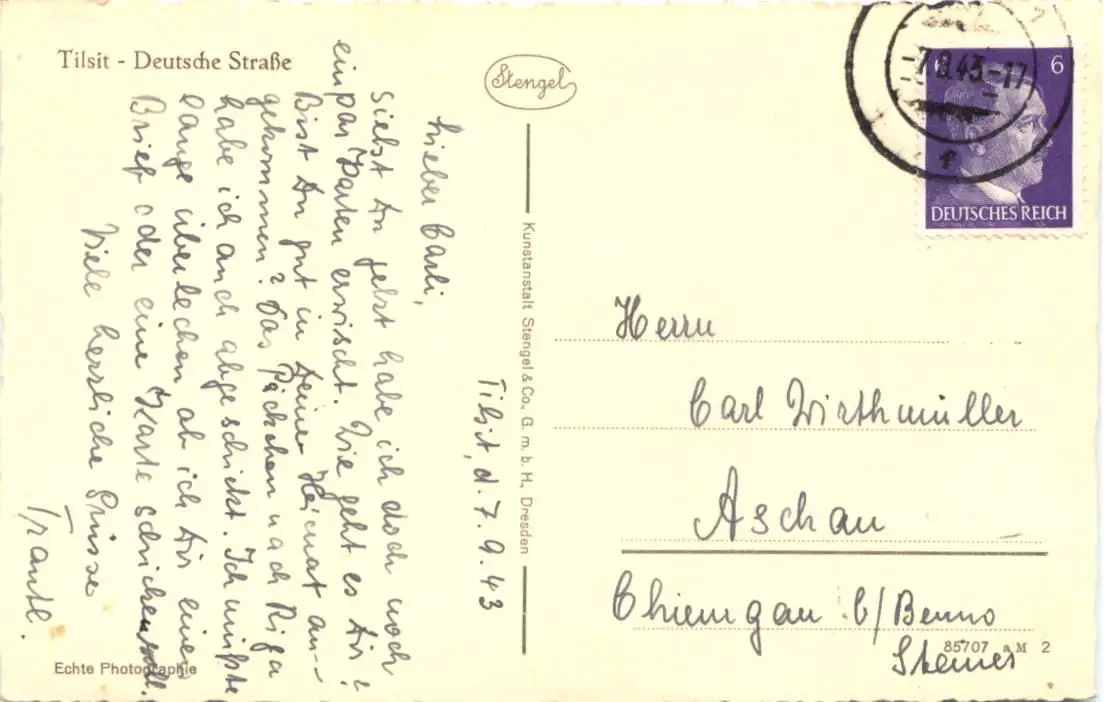 Tilsit - Deutsche Straße
Stengel
Tilsit, d. 7.9.43
Lieber Carli,
siehst Du jetzt habe ich doch noch
einpar Karten erwischt. Wie geht es Dir?
Bist Du gut in Deiner Heimat an-
gekommen? Das Päckchen nach Riga
habe ich auch abgeschickt. Ich mußte
lange überlechen ob ich Dir einen
Brief oder eine Karte schreiben soll.
Viele herzliche Grüsse
Trautl.
Echte Photographie
Kunstanstalt Stengel & Co., G. m. b. H., Dresden
-7.9.43-17
6
DEUTSCHES REICH
Herrn
Carl Wirthmüller
Aschau
Chiemgau b/Benno
Steiner
85707 a M 2